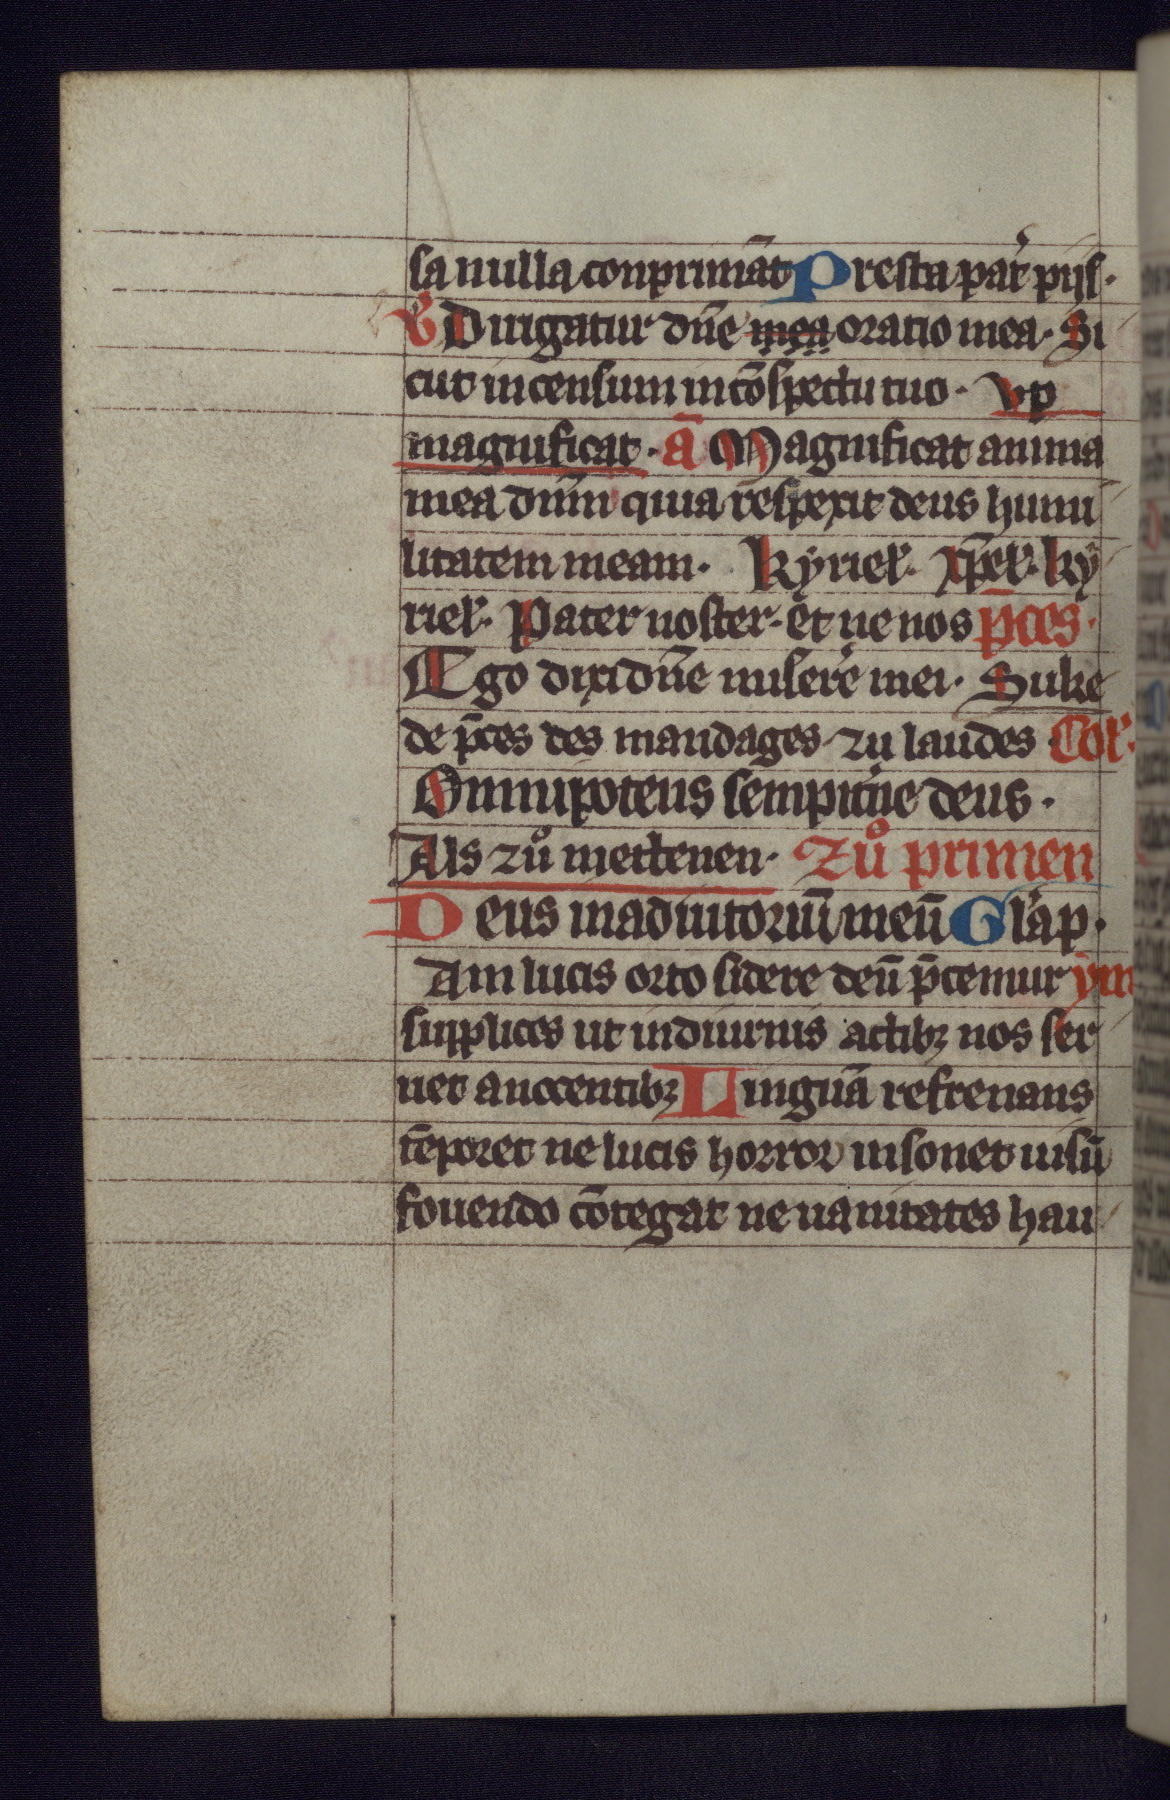 sa nulla conprimāt Presta pat͛ pijs·
℣ Dirigatur dn̄e mea oratio mea· Si
cut incensum in cōspectu tuo· vp
magnificat· ā Magnificat anima
mea dnm̄ quia respexit deus humi
litatem meam· kyriel͛· xp̄el͛· ky
riel͛· Pater noster· et ne nos p̄ces·
Ego dixi dn̄e misere͛ mei· Suke
de p̄ces des mandages zu laudes Col͛·
Omnipotens sempit͛ne deus·
Als zů mettenen· Zů primen
Deus in adiutoriū meū Gl͛a p·
Am lucis orto sidere deū p̄cemur ym
supplices ut in diurnis actibꝫ nos ser
uet a nocentibꝫ Linguā refrenans
tēperet ne lucis horror insonet uisū
fouendo cōtegat ne uanitates hau